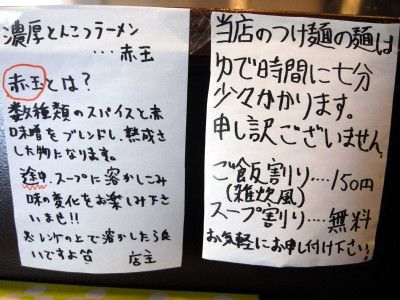 濃厚とんこつラーメン
・・・赤玉
赤玉とは?
数種類のスパイスと赤
味噌をブレンドし、熟成さ
した物になります。
途中、スープに溶かしこみ
味の変化をお楽しみ下さ
いませ!!
レンゲの上で溶かしたら良
いですよ
店主
当店のつけ麺の麺は
ゆで時間に七分
少々かかります。
申し訳ございません
ご飯割り‥‥150円
(雑炊風)
スープ割り‥‥無料
お気軽にお申し付け下さい。